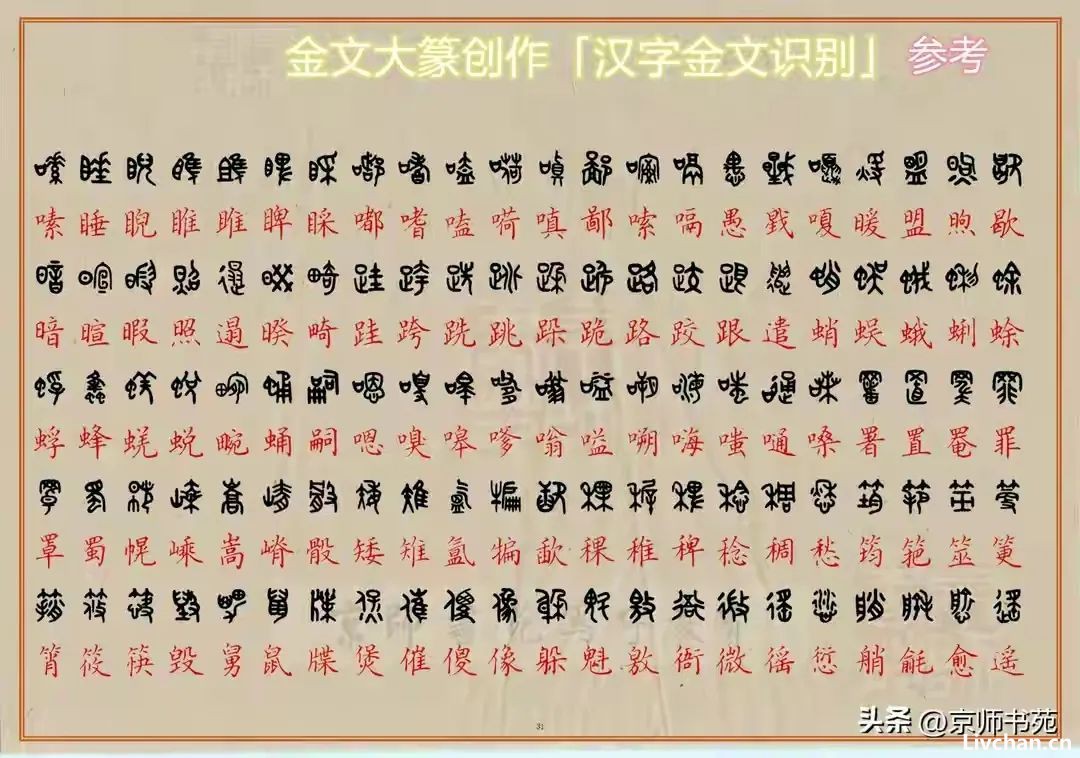 金文大篆创作「汉字金文识别」 参考
嗉睡睨睢雎睥睬嘟嗜嗑嗬嗔鄙嗦嗝愚戥嗄暖盟煦歇
暗暄暇照遢暌畸跬跨跣跳跺跪路跤跟遣蛸蜈蛾蜊蜍
蜉蜂蜣蜕畹蛹嗣嗯嗅嗥嗲嗡嗌嗍嗨嗤嗵嗓署置罨罪
罩蜀幌嵊嵩嵴骰矮雉氲揙歃稞稚稗稔稠愁筠筢筮筻
筲筱筷毁舅鼠牒煲催傻像躲魁敫衙微徭愆艄毹愈遥
31
头条 @京师书苑
Livchan.cn